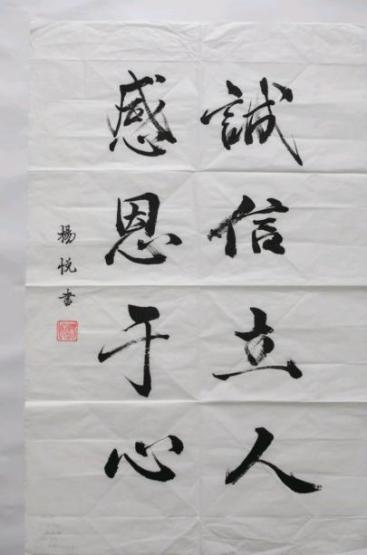 誠信立人
感恩于心
楊悦书